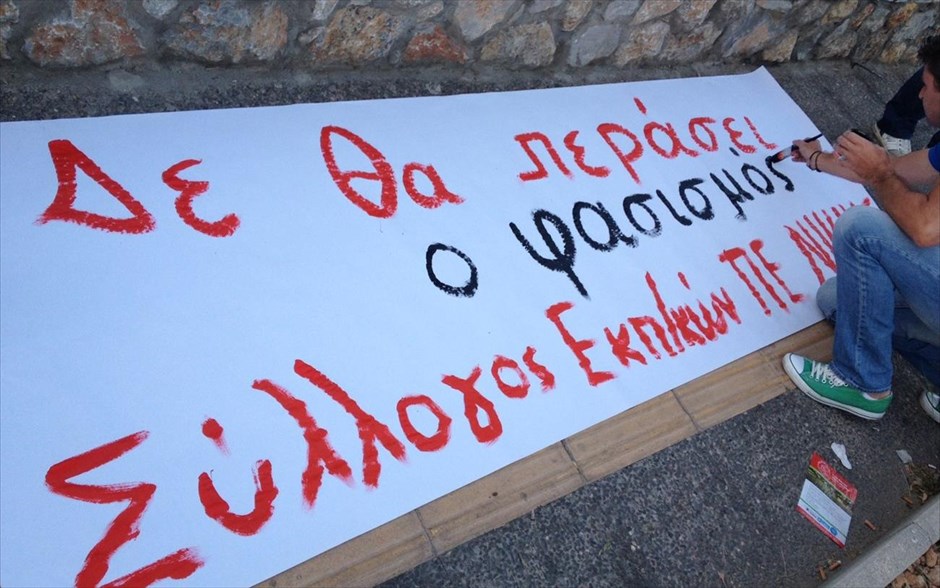 Δε θα περάσει
ο φασισμός
Σύλλογος Εκπ/κών ΠΕ